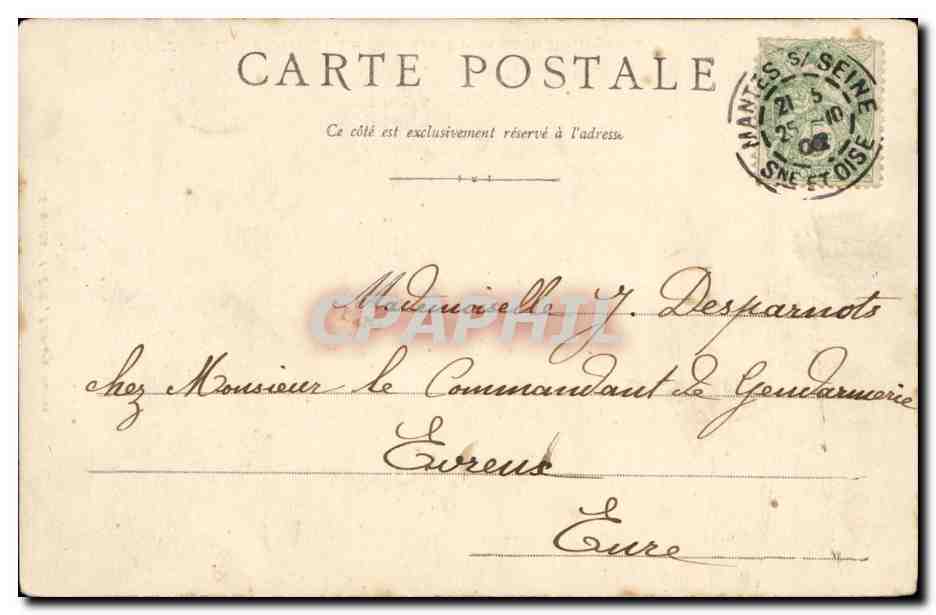 CARTE POSTALE
Ce côté est exclusivement réservé à l'adresse
MANTES S/ SEINE
21 5
25 -10
SNE ET OISE
CPAPHIL
Mademoiselle J. Desparnots
chez Monsieur le Commandant de Gendarmerie
Evreux
Eure